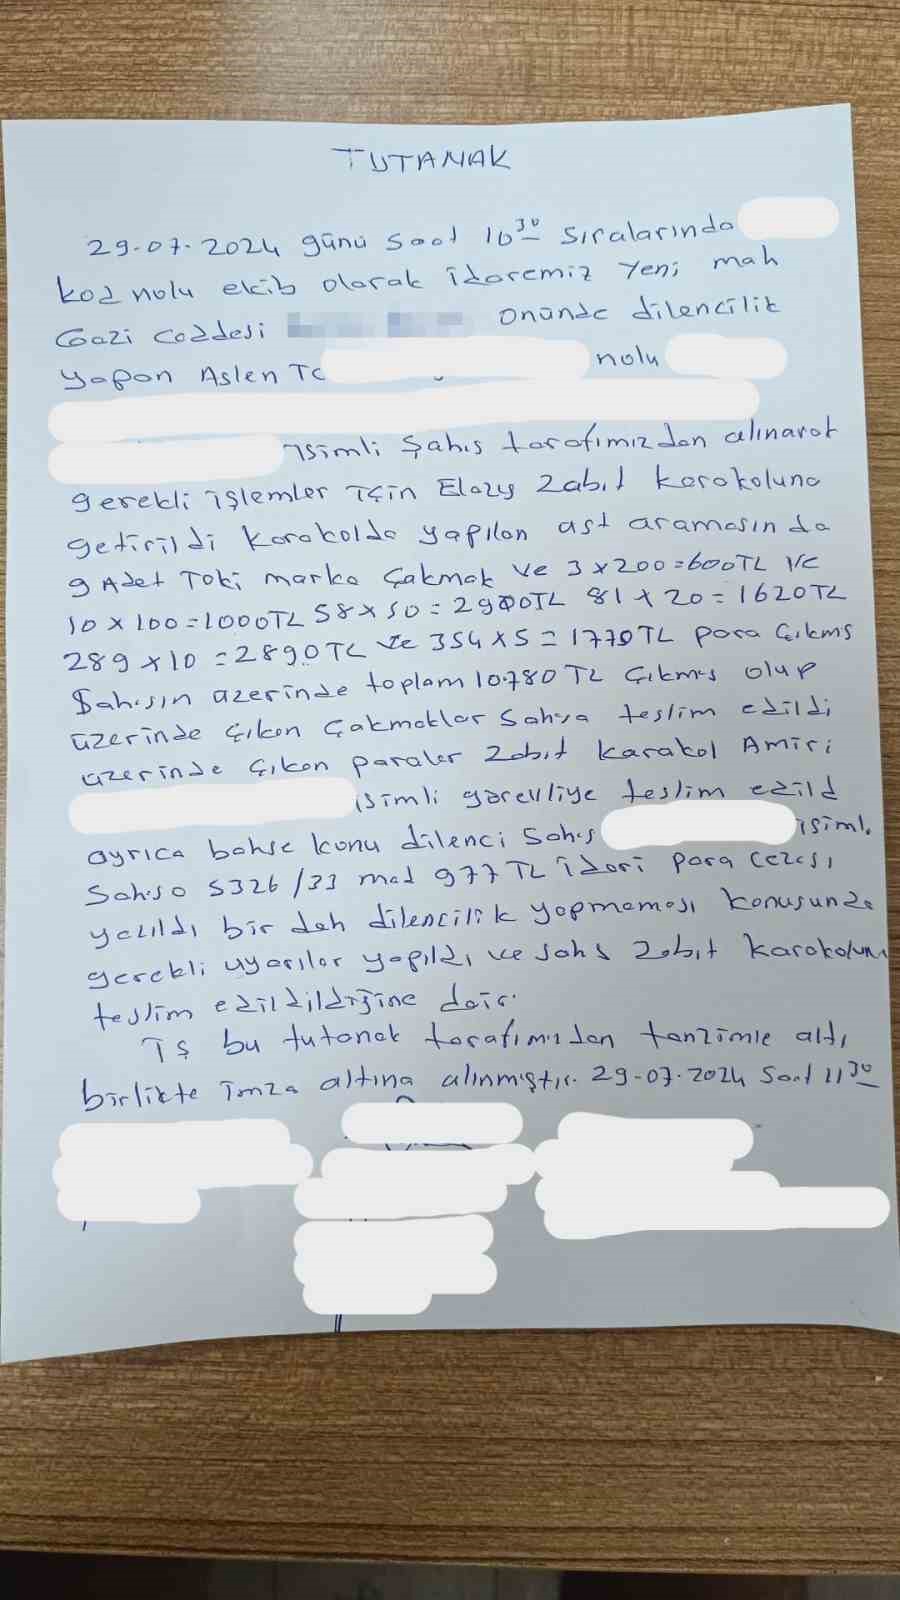 TUTANAK
29-07-2024 günü saat 10³⁰ sıralarında
kod nolu ekib olarak idaremiz Yeni mah
Gazi Caddesi önünde dilencilik
yapan Aslen TC nolu
isimli şahıs tarafımızdan alınarak
gerekli işlemler için Elazığ Zabıt karokoluna
getirildi karokolda yapılan üst aramasında
9 Adet Toki marka Çakmak ve 3x200=600TL ve
10x100=1000TL 58x50=2900TL 81x20=1620TL
289x10=2890TL ve 354x5=1770TL para çıkmış
Şahısın üzerinde toplam 10.780 TL Çıkmış olup
üzerinde çıkan çakmaklar Şahısa teslim edildi
üzerinde çıkan paralar Zabıt karakol Amiri
isimli görevliye teslim edild
ayrıca bahse konu dilenci şahıs isimli
Şahısa 5326/33 mad 977 TL idari para cezası
yazıldı bir dah dilencilik yapmaması konusunda
gerekli uyarılar yapıldı ve şahs Zabıt karokolun
teslim edildildiğine dair.
İş bu tutanak tarafımızdan tanzimle altı
birlikte imza altına alınmıştır. 29-07-2024 Saat 11³⁰